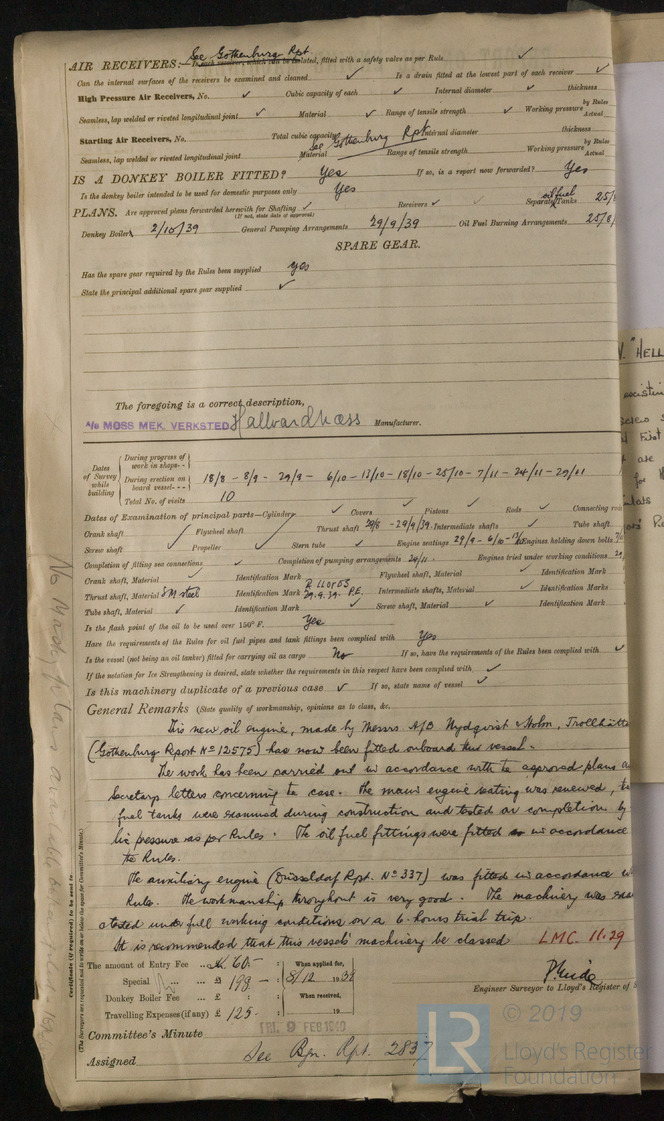 See Gothenburg Rpt.
AIR RECEIVERS:— Is each receiver, which can be isolated, fitted with a safety valve as per Rule ✓
Can the internal surfaces of the receivers be examined and cleaned ✓ Is a drain fitted at the lowest part of each receiver ✓
High Pressure Air Receivers, No. ✓ Cubic capacity of each ✓ Internal diameter ✓ thickness
Seamless, lap welded or riveted longitudinal joint ✓ Material ✓ Range of tensile strength ✓ Working pressure by Rules Actual
Starting Air Receivers, No. Total cubic capacity See Gothenburg Rpt Internal diameter thickness
Seamless, lap welded or riveted longitudinal joint Material Range of tensile strength Working pressure by Rules Actual
IS A DONKEY BOILER FITTED? Yes If so, is a report now forwarded? Yes
Is the donkey boiler intended to be used for domestic purposes only Yes
PLANS. Are approved plans forwarded herewith for Shafting ✓ Receivers ✓ Separate oil fuel Tanks 25/8
(If not, state date of approval)
Donkey Boilers 2/10/39 General Pumping Arrangements 29/9/39 Oil Fuel Burning Arrangements 25/8/
SPARE GEAR.
Has the spare gear required by the Rules been supplied yes
State the principal additional spare gear supplied ✓
The foregoing is a correct description,
A/S MOSS MEK. VERKSTED Hallvard Næss Manufacturer.
Dates of Survey while building
During progress of work in shops - -
During erection on board vessel - - - 18/8 - 8/9 - 29/9 - 6/10 - 13/10 - 18/10 - 25/10 - 7/11 - 24/11 - 29/11
Total No. of visits 10
Dates of Examination of principal parts—Cylinders ✓ Covers ✓ Pistons ✓ Rods ✓ Connecting rods
Crank shaft ✓ Flywheel shaft ✓ Thrust shaft 29/8 - 29/9.39. Intermediate shafts ✓ Tube shaft
Screw shaft ✓ Propeller ✓ Stern tube ✓ Engine seatings 29/9 - 6/10 - 13/10 Engines holding down bolts
Completion of fitting sea connections ✓ Completion of pumping arrangements 24/11 Engines tried under working conditions 29
Crank shaft, Material ✓ Identification Mark ✓ Flywheel shaft, Material ✓ Identification Mark
Thrust shaft, Material S M steel Identification Mark R LLOYDS 29.9.39. P.E. Intermediate shafts, Material ✓ Identification Marks
Tube shaft, Material ✓ Identification Mark ✓ Screw shaft, Material ✓ Identification Mark
Is the flash point of the oil to be used over 150° F. Yes
Have the requirements of the Rules for oil fuel pipes and tank fittings been complied with Yes
Is the vessel (not being an oil tanker) fitted for carrying oil as cargo No If so, have the requirements of the Rules been complied with ✓
If the notation for Ice Strengthening is desired, state whether the requirements in this respect have been complied with ✓
Is this machinery duplicate of a previous case ✓ If so, state name of vessel ✓
General Remarks (State quality of workmanship, opinions as to class, &c.
This new oil engine, made by Messrs A/B Nydqvist & Holm, Trollhätta
(Gothenburg Report No 12575) has now been fitted onboard this vessel.
The work has been carried out in accordance with the approved plans a
Secretary's letters concerning the case. The main engine seating was renewed, the
fuel tanks were examined during construction and tested on completion by
hic pressure as per Rules. The oil fuel fittings were fitted in accordance
the Rules.
The auxiliary engine (Düsseldorf Rpt. No 337) was fitted in accordance w
Rules. The workmanship throughout is very good. The machinery was exa
& tested under full working conditions on a 6 hours trial trip.
It is recommended that this vessel's machinery be classed LMC. 11.39
The amount of Entry Fee ... Kr. 60.- : When applied for,
Special ... £ 198 - : 8/12 1939
Donkey Boiler Fee ... £ : When received,
Travelling Expenses (if any) £ 125.- 19
Engineer Surveyor to Lloyd's Register of S
FRI. 9 FEB 1940
Committee's Minute
Assigned See Bgn. Rpt. 2837
Certificate (if required) to be sent to
(The Surveyors are requested not to write on or below the space for Committee's Minute.)
V. "HELL
existin
screws
First
are
for
© 2019
LR
Lloyd's Register
Foundation